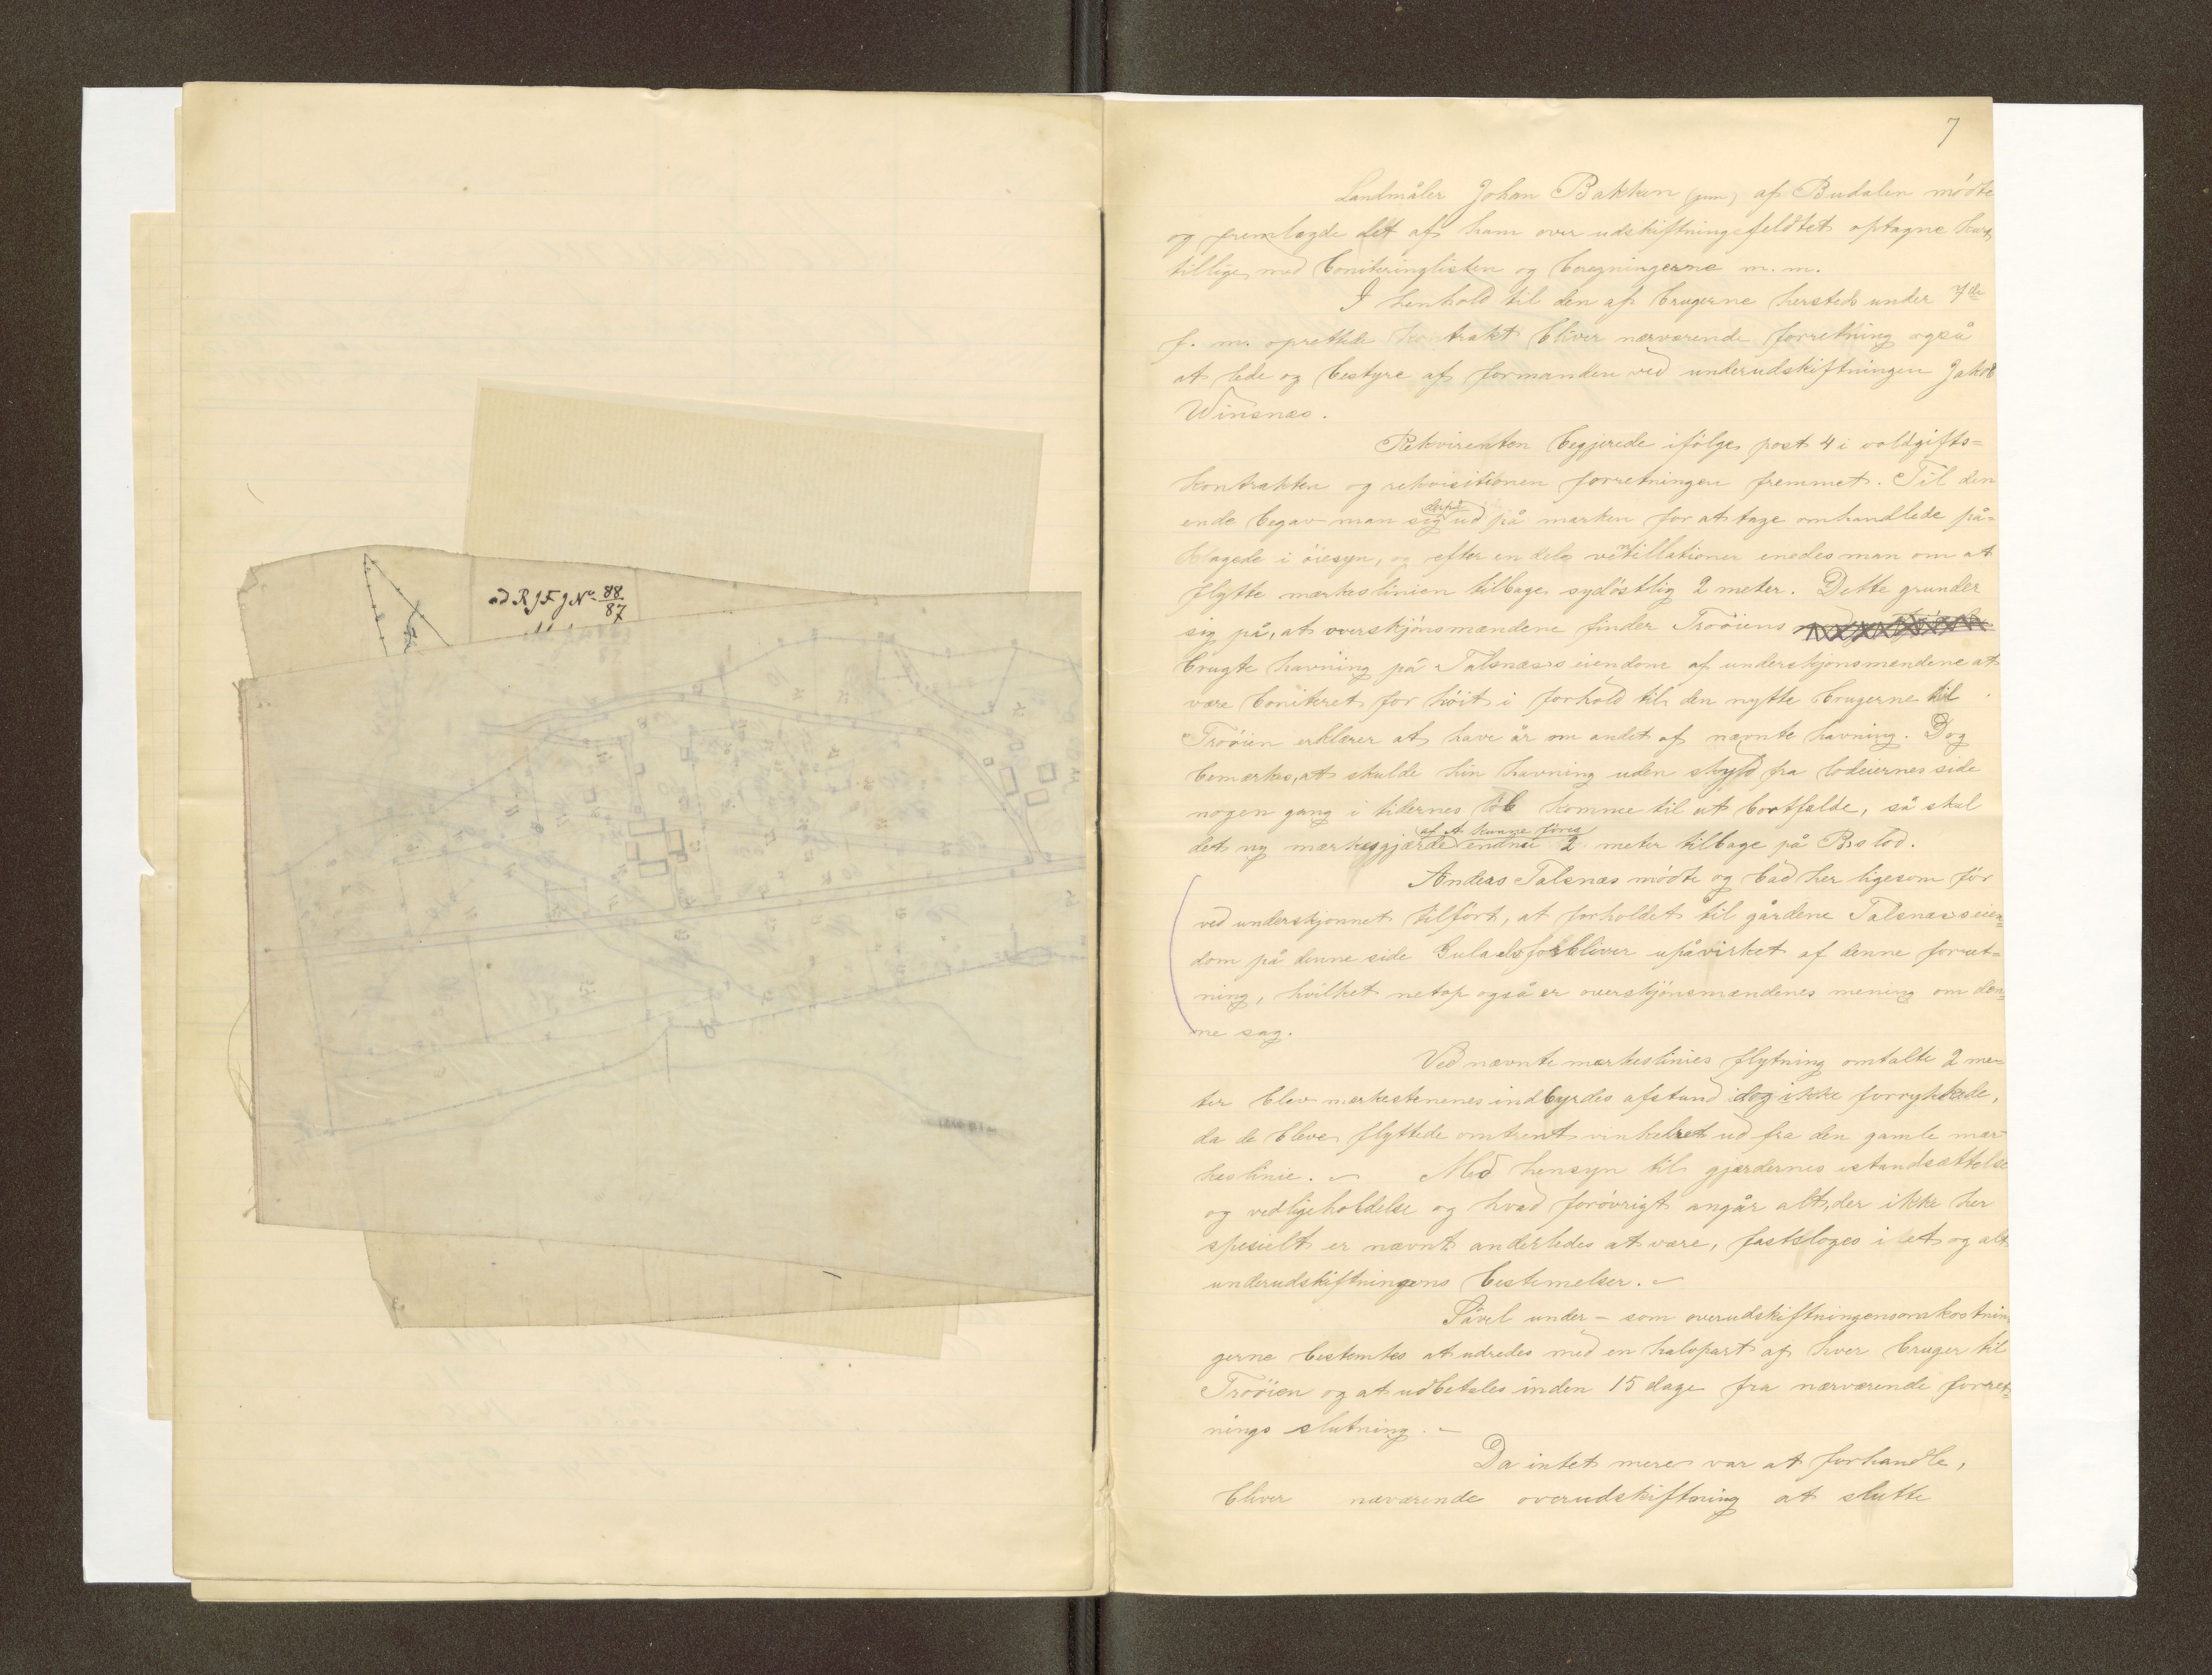 ad R J F J No 88
87
7
Landmåler Johan Bakken (jun) af Budalen mödte
og fremlagde det af ham over udskiftningsfeldtet optagne kart
tillige med boniteringlisten og beregningerne m. m.
I henhold til den af brugerne hersteds under 7de
f. m. oprettede kontrakt bliver nærværende forretning også
at lede og bestyre af formanden ved underudskiftningen Jakob
Winsnæs.
Rekvirenten begjærede ifölge post 4 i voldgifts=
kontrakten og rekvisitionen forretningen fremmet. Til den
ende begav man sig derpå ud på marken for at tage omhandlede på=
klagede i öiesyn, og efter en del ventillationer enedes man om at
flytte merkeslinien tilbage sydöstlig 2 meter. Dette grunder
sig på, at overskjönsmændene finder Troöiens
brugte havning på Talsnæss eiendom af underskjönsmændene at
være boniteret for höit i forhold til den nytte brugerne til
Troöien erklærer at have år om andet af nævnte havning. Dog
bemærkes, at skulde hin havning uden skyld fra lodeiernes side
nogen gang i tidernes löb komme til at bortfalde, så skal
det ny merkesgjærde af A. kunne föres endnu 2 meter tilbage på B.s lod.
Anders Talsnæs mödte og bad her ligesom för
ved underskjönnet tilfört, at forholdet til gårdene Talsnæss eien=
dom på denne side Gulaelv forbliver upåvirket af denne forret=
ning, hvilket netop også er overskjönsmændenes mening om den=
ne sag.
Ved nævnte merkeslinies flytning omtalte 2 me=
ter blev merkestenenes indbyrdes afstand dog ikke forrykkede,
da de bleve flyttede omtrent vinkelret ud fra den gamle mer=
keslinie. Med hensyn til gjærdernes istandsættelse
og vedligeholdelse og hvad forövrigt angår alt, der ikke her
spesielt er nævnt anderledes at være, fastsloges i et og alt
underudskiftningens bestemelser.
Såvel under- som overudskiftningensomkostnin
gerne bestemtes at udredes med en halvpart af hver bruger til
Troöien og at udbetales inden 15 dage fra nærværende forret=
nings slutning.
Da intet mere var at forhandle,
bliver nærværende overudskiftning at slutte